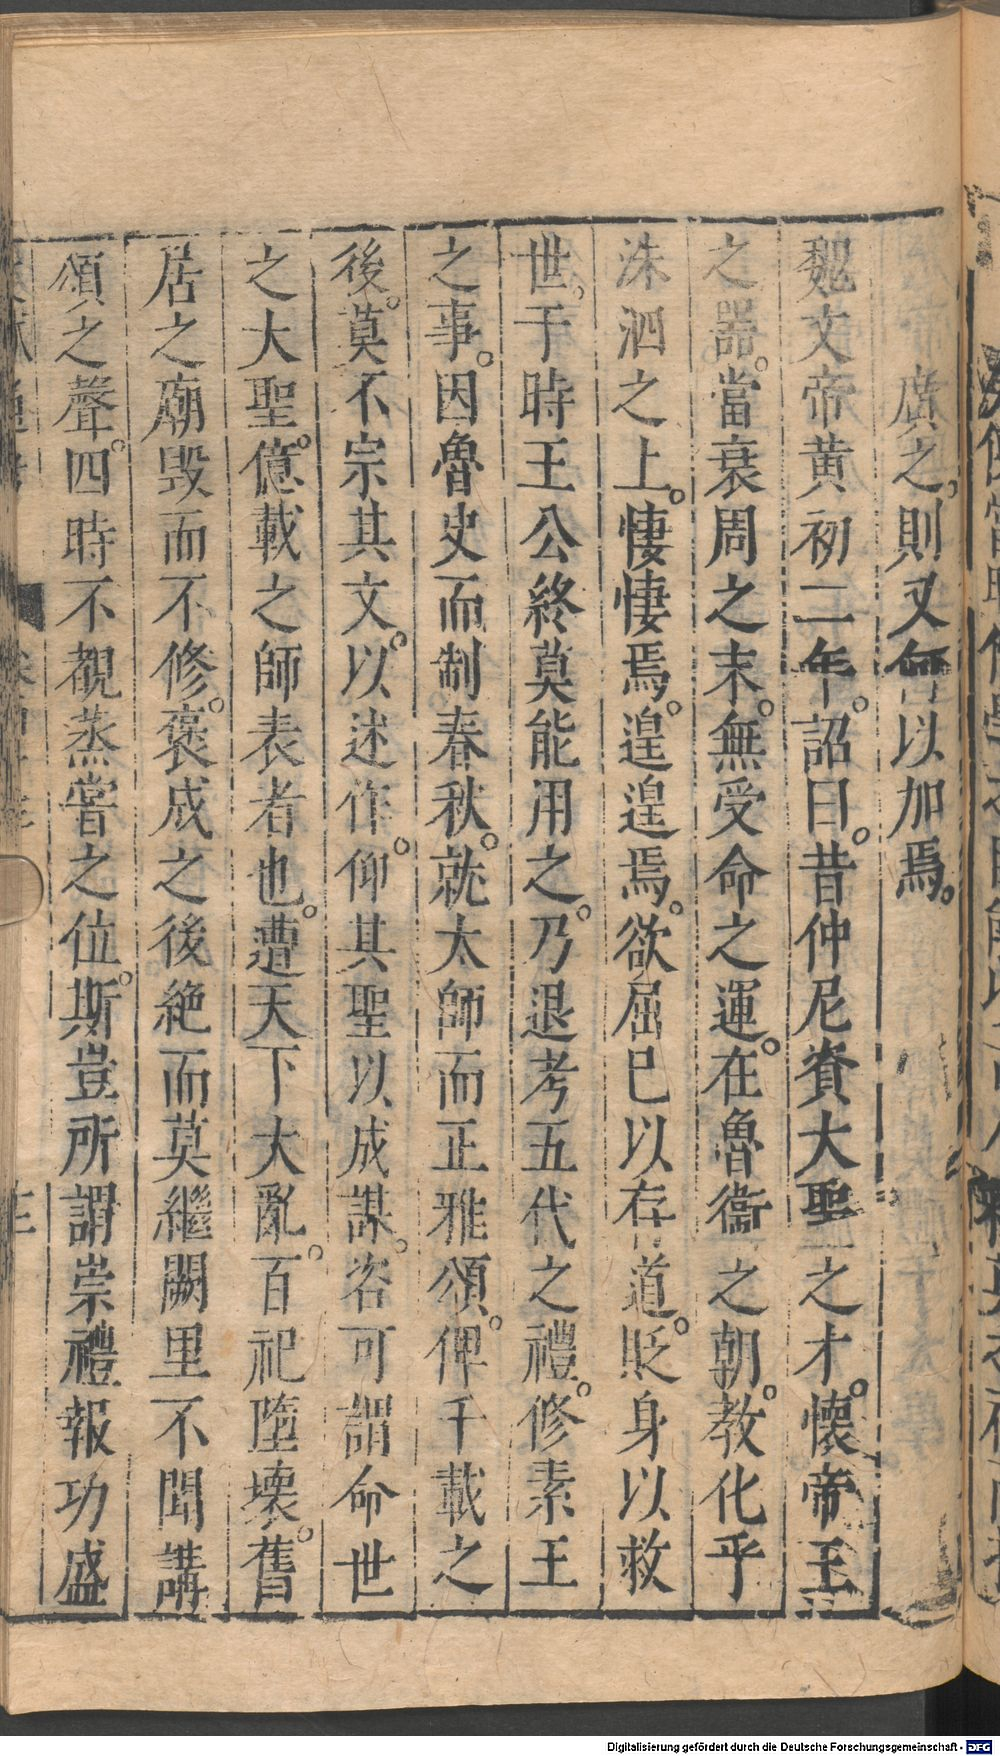 廣之。則又何以加焉。
魏文帝黄初二年。詔曰。昔仲尼資大聖之才。懷帝王
之器。當衰周之末。無受命之運。在魯衞之朝。教化乎
洙泗之上。悽悽焉。遑遑焉。欲屈已以存道。貶身以救
世。于時王公終莫能用之。乃退考五代之禮。修素王
之事。因魯史而制春秋。就太師而正雅頌。俾千載之
後。莫不宗其文。以述作。仰其聖以成謀。咨可謂命世
之大聖。億載之師表者也。遭天下大亂。百祀墮壞。舊
居之廟毁而不修。褒成之後絶而莫繼闕里不聞講
頌之聲。四時不覩蒸嘗之位。斯豈所謂崇禮報功盛
Digitalisierung gefördert durch die Deutsche Forschungsgemeinschaft - DFG